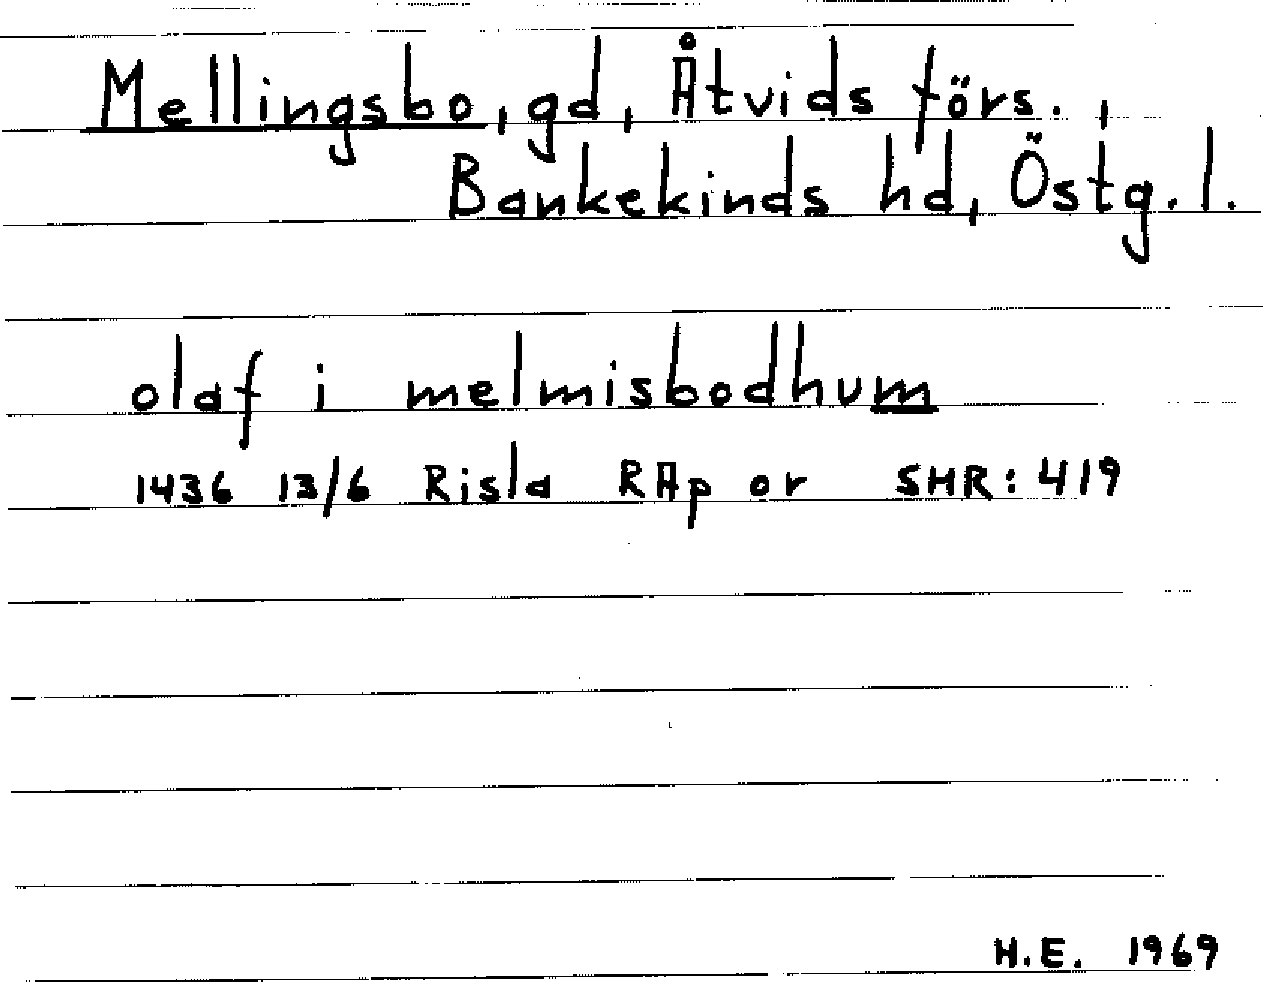 Mellingsbo, gd, Åtvids förs.,
Bankekinds hd, Östg. l.
olaf i melmisbodhum
1436 13/6 Risla RAp or SHR: 419
H.E. 1969